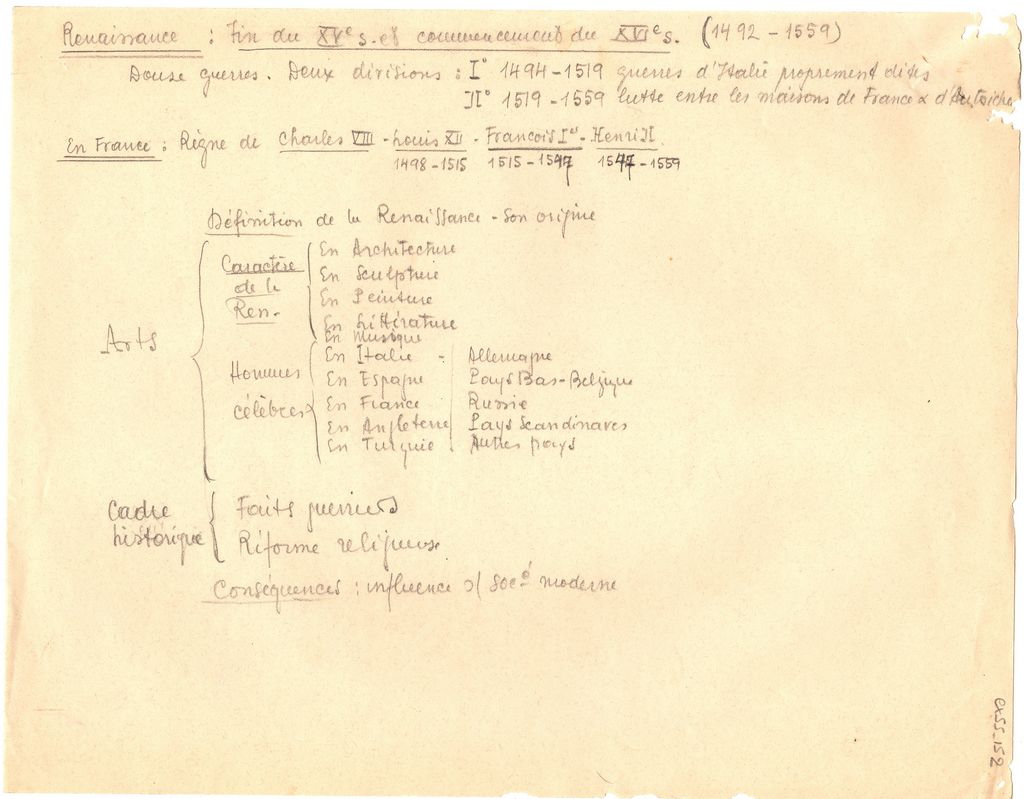 Renaissance : Fin du XVe s. et commencement du XVIe s. (1492 - 1559)
Douse guerres. Deux divisions : I° 1494-1519 guerres d'Italie proprement dites
II° 1519 - 1559 lutte entre les maisons de France & d'Autriche
En France : Règne de Charles VIII - Louis XII - François Ier - Henri II.
1498-1515 1515-1547 1547-1559
Définition de la Renaissance - Son origine
Arts
Caractère de la Ren.
En Architecture
En Sculpture
En Peinture
En Littérature
En Musique
Hommes célèbres
En Italie - Allemagne
En Espagne Pays Bas-Belgique
En France Russie
En Angleterre Pays Scandinaves
En Turquie Autres pays
Cadre historique
Faits guerriers
Réforme religieuse
Conséquences : influence s/ Socé moderne